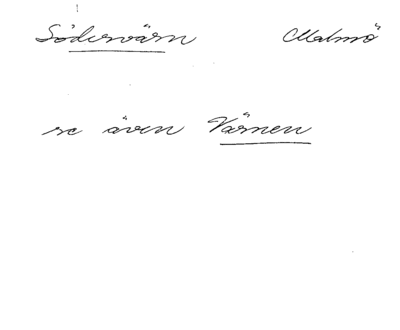 Södervärn Malmö
se även Värnen